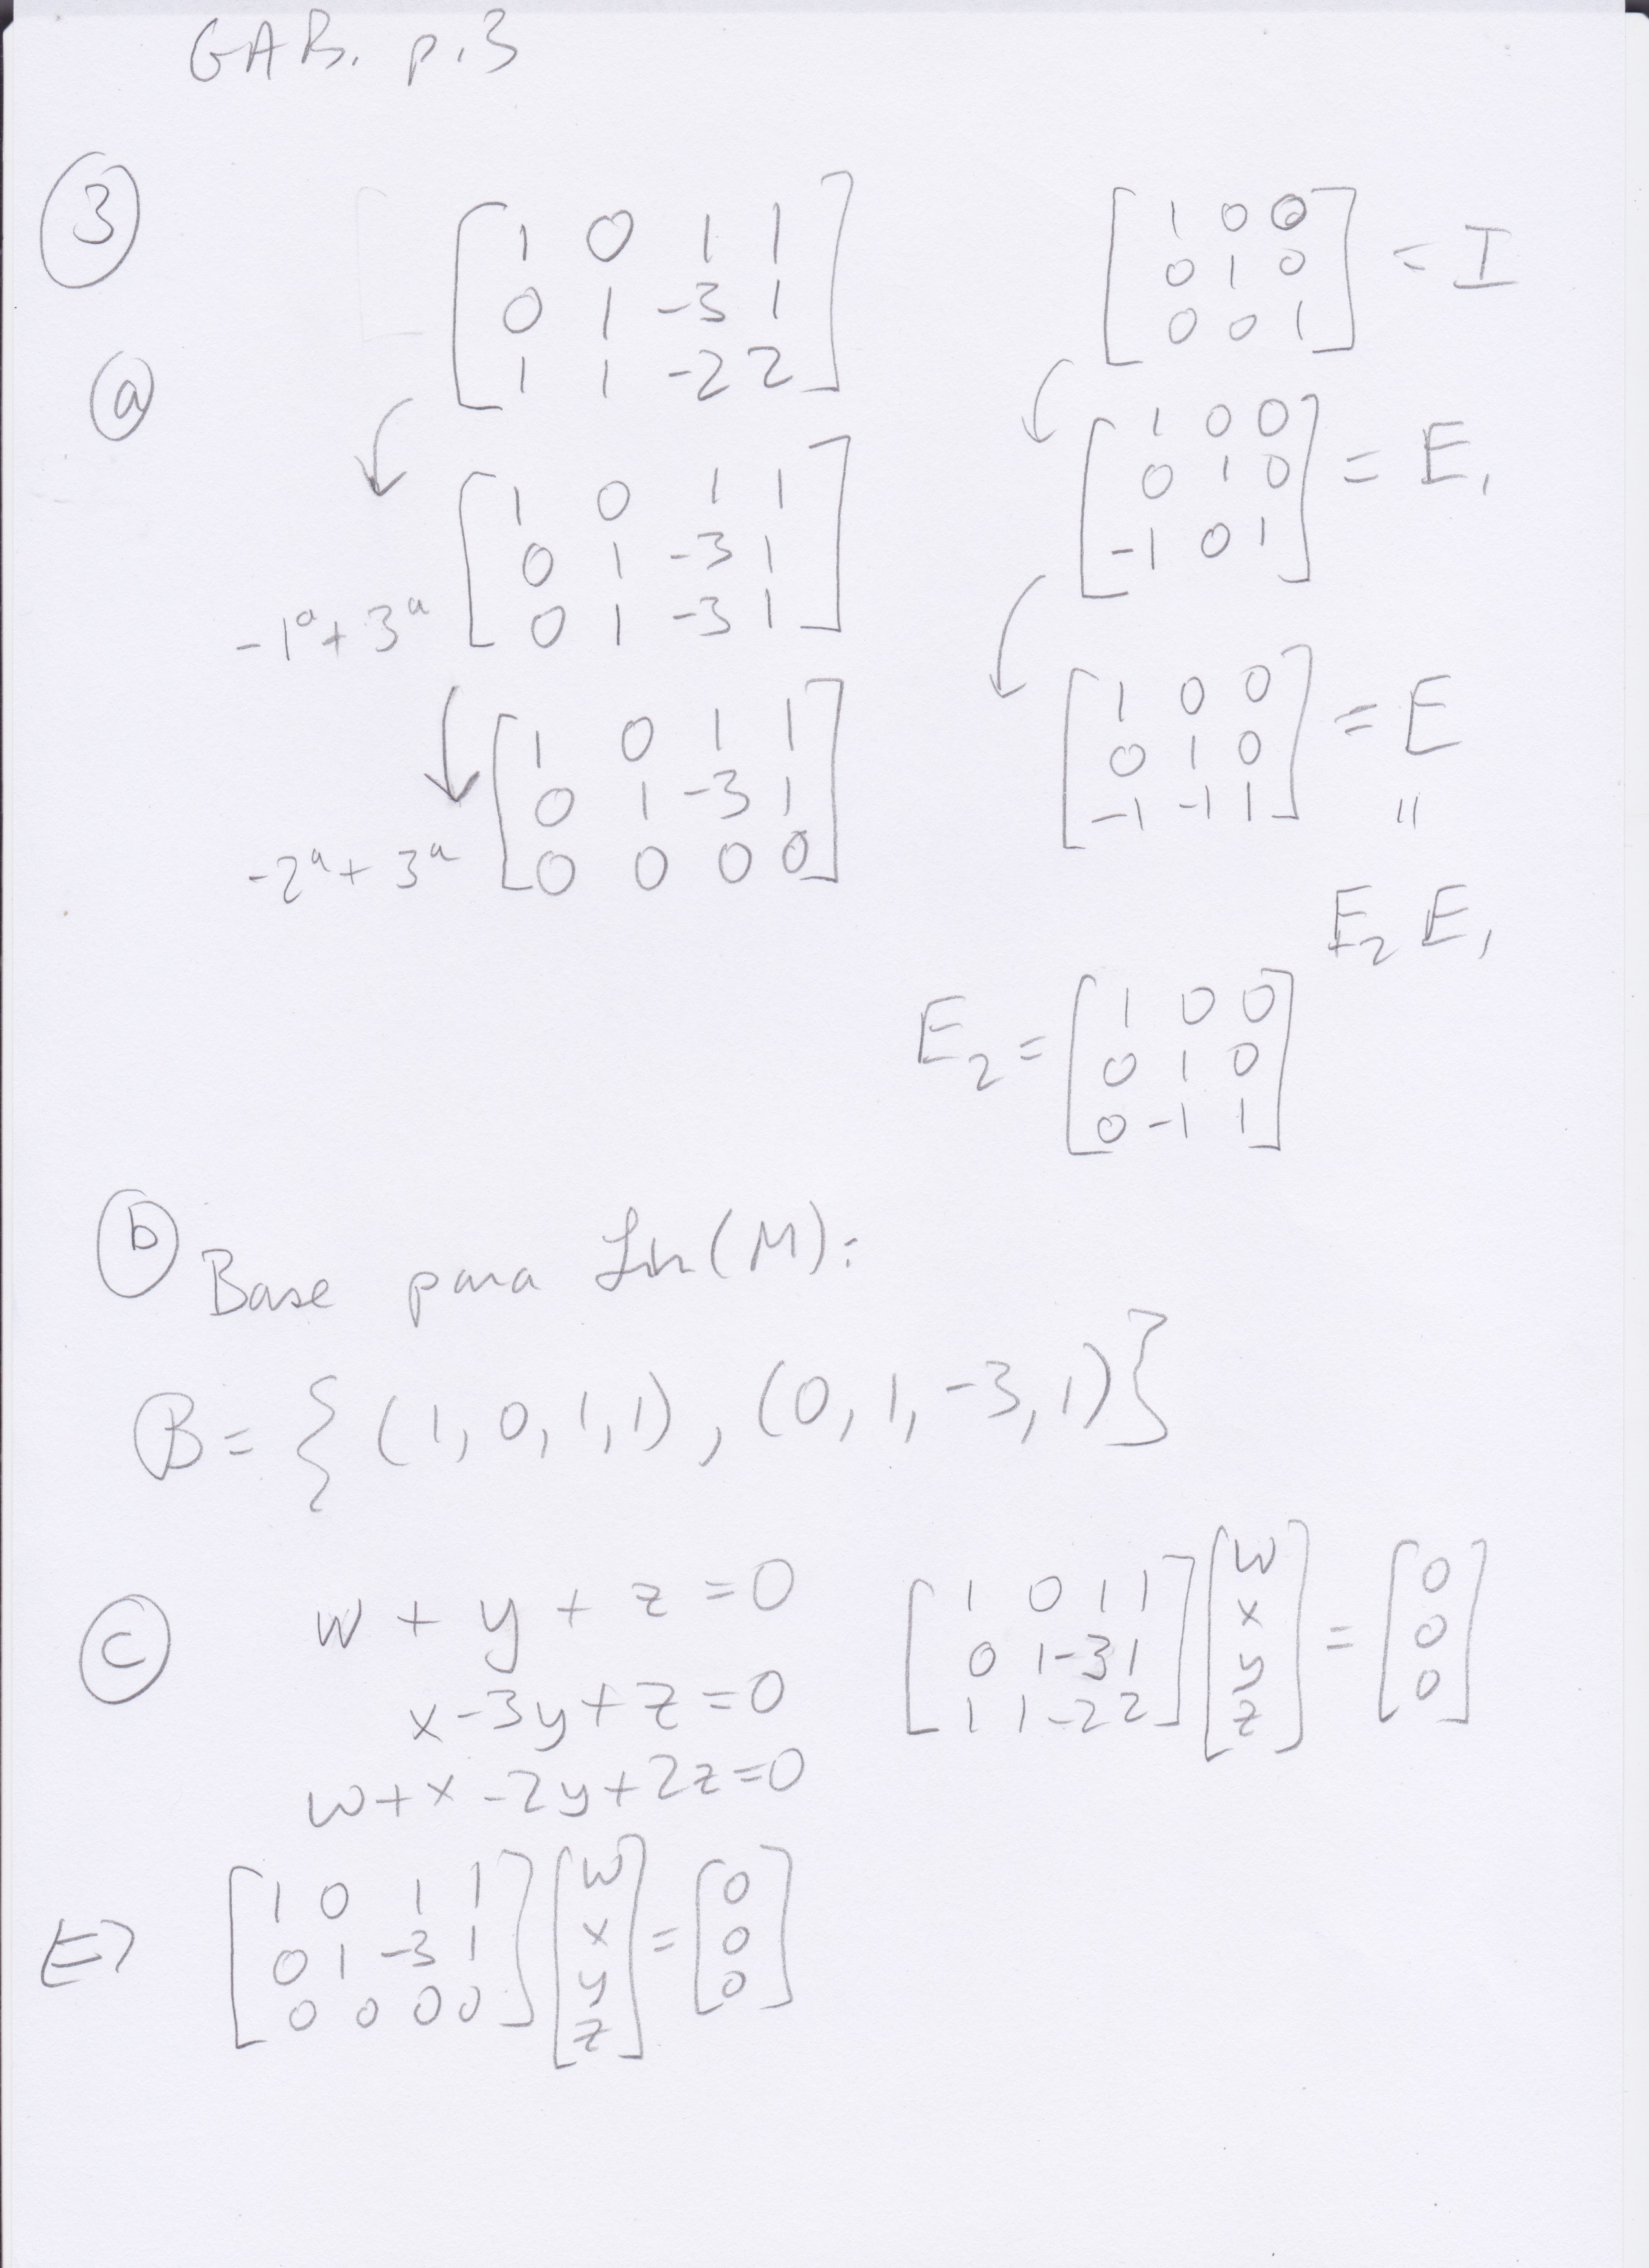 GAB. p.3
3
a
[ 1 0 1 1
0 1 -3 1
1 1 -2 2 ]
[ 1 0 0
0 1 0
0 0 1 ] = I
-1ª + 3ª [ 1 0 1 1
0 1 -3 1
0 1 -3 1 ]
[ 1 0 0
0 1 0
-1 0 1 ] = E₁
-2ª + 3ª [ 1 0 1 1
0 1 -3 1
0 0 0 0 ]
[ 1 0 0
0 1 0
-1 -1 1 ] = E
=
E₂ E₁
E₂ = [ 1 0 0
0 1 0
0 -1 1 ]
b Base para Lin(M):
B = { (1, 0, 1, 1), (0, 1, -3, 1) }
c
w + y + z = 0
x - 3y + z = 0
w + x - 2y + 2z = 0
[ 1 0 1 1
0 1 -3 1
1 1 -2 2 ] [ w
x
y
z ] = [ 0
0
0 ]
⇔ [ 1 0 1 1
0 1 -3 1
0 0 0 0 ] [ w
x
y
z ] = [ 0
0
0 ]